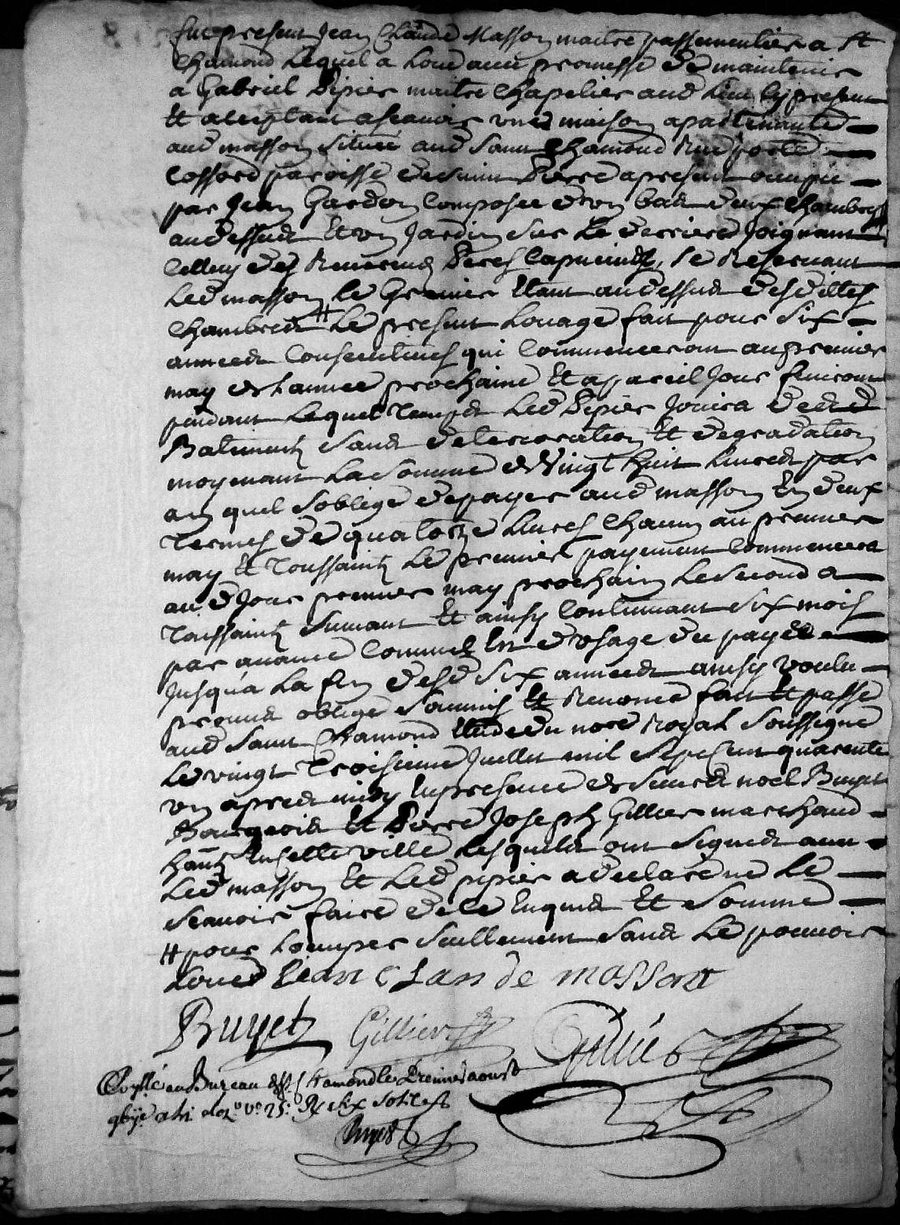 fut present Jean Claude Masson maitre passementier a St
Chamond Lequel a Loué avec promesse de maintenir
a Gabriel Pipier maitre Chapelier aud Lieu cy present
Et acceptant ascavoir une maison apartenante
aud masson située aud Saint Chamond Rue porte
Cossard paroisse de Saint Pierre apresent occupée
par Jean Gardon Composée d'un bas deux Chambres
audessus Et un Jardin sur Le derriere Joignant
Celluy des Reverends Peres Capucins, se Reservant
Led masson le Grenier Etant audessus desdittes
Chambres # Le present Louage fait pour Six
années Consecutives qui Commenceront au premier
may de L'année prochaine Et apareil Jour finiront
pendant Lequel temps Led Pipier Jouira desd
Batiments Sans deterioration Et degradation
moyenant La Somme de Vingt huit Livres par
an quel soblige de payer aud masson En deux
Termes de quatorze Livres Chacun au premier
may Et Toussaints Le premier payement Commencera
aud Jour premier may prochain Le second a
Toussaints suivant Et ainsy Continuant Six mois
par avance Comme Est d'usage de payer
Jusqu'a La fin desd Six années ainsy voulu
promis obligé Soumis Et Renoncé fait Et passé
aud Saint Chamond Etude du nore Royal Soussigné
Le vingt Troisieme Juillet mil Sept Cent quarente
un apres midy En presence de Sieurs noel Buyet
Bourgeois Et Pierre Joseph Gillier marchand
hants En cette ville Lesquels ont Signés avec
Led masson Et Led pipier a declaré ne Le
scavoir faire de ce Enquis Et Sommé
# pour L'occuper Seullement Sans Le pouvoir
Louer Jean Clau de masson
Buyet Gillier
au Bureau de St Chamond le Premier aoust
Buyet